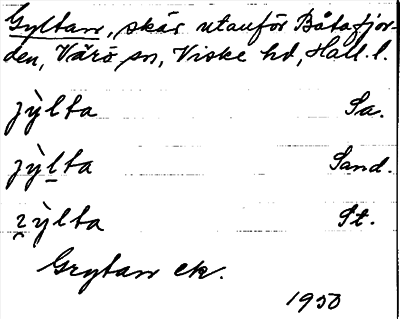 Gyltan, skär utanför Båtafjor-
den, Värö sn, Viske hd, Hall. l.
jỳlta Sa.
jỳlta Sand.
ɀỳlta St.
Grytan ek.
1950